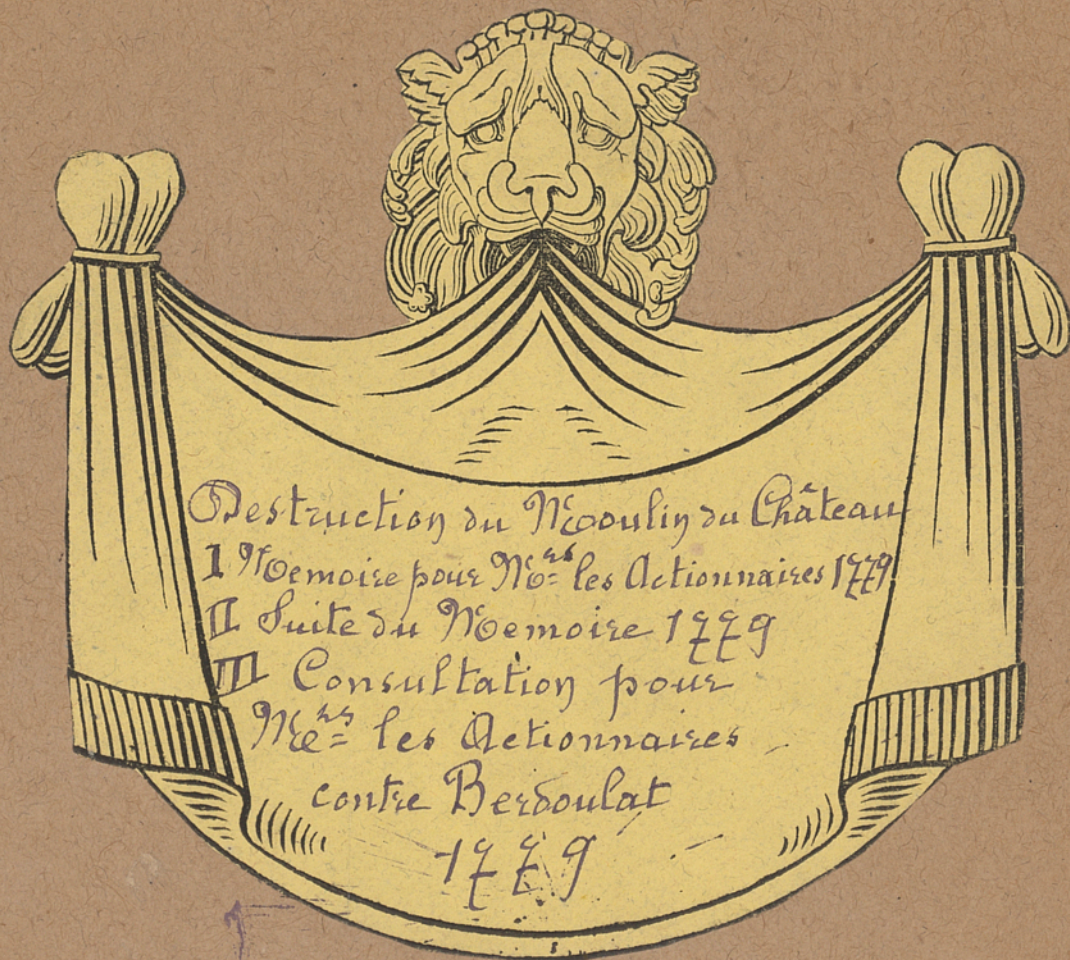 Destruction du Moulin du Château
I Memoire pour M.rs les Actionnaires 1779
II Suite du Memoire 1779
III Consultation pour
M.rs les Actionnaires
contre Berdoulat
1779